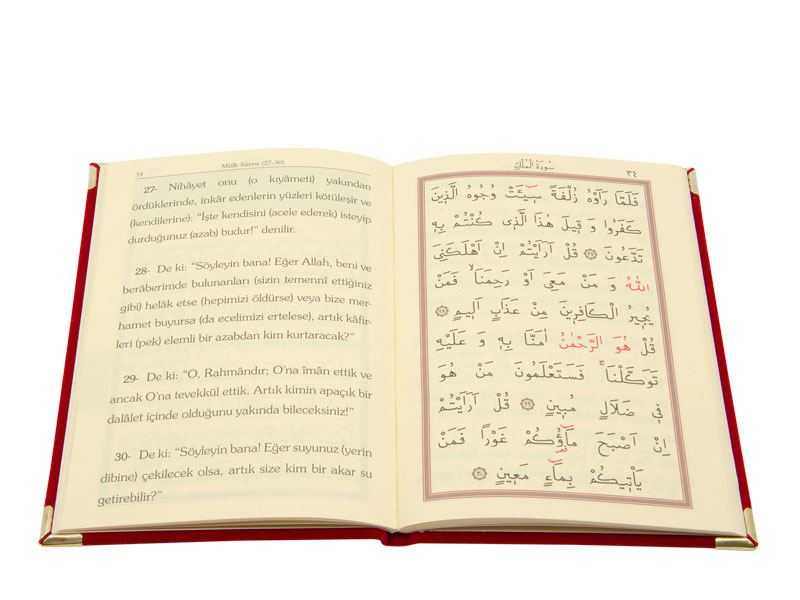 34
Mülk Sûresi (27-30)
27- Nihâyet onu (o kıyâmeti) yakından
ördüklerinde, inkâr edenlerin yüzleri kötüleşir ve
(kendilerine): “İşte kendisini (acele ederek) isteyip
durduğunuz (azab) budur!” denilir.
28- De ki: “Söyleyin bana! Eğer Allah, beni ve
berâberimde bulunanları (sizin temennî ettiğiniz
gibi) helâk etse (hepimizi öldürse) veya bize mer-
hamet buyursa (da ecelimizi ertelese), artık kâfir-
leri (pek) elemli bir azabdan kim kurtaracak?”
29- De ki: “O, Rahmândır; O’na îman ettik ve
ancak O’na tevekkül ettik. Artık kimin apaçık bir
dalâlet içinde olduğunu yakında bileceksiniz!”
30- De ki: “Söyleyin bana! Eğer suyunuz (yerin
dibine) çekilecek olsa, artık size kim bir akar su
getirebilir?”
سُورَةُ الْمُلْكِ
٣٤
فَلَمَّا رَاَوْهُ زُلْفَةً سِٓيـَٔتْ وُجُوهُ الَّذِينَ
كَفَرُوا وَ قِيلَ هٰذَا الَّذِى كُنْتُمْ بِهِ
تَدَّعُونَ ﴿٢٧﴾ قُلْ اَرَاَيْتُمْ اِنْ اَهْلَكَنِىَ
اللّٰهُ وَ مَنْ مَعِىَ اَوْ رَحِمَنَاۙ فَمَنْ
يُجِيرُ الْكَافِرِينَ مِنْ عَذَابٍ اَلِيمٍ ﴿٢٨﴾
قُلْ هُوَ الرَّحْمٰنُ اٰمَنَّا بِهِ وَ عَلَيْهِ
تَوَكَّلْنَاۚ فَسَتَعْلَمُونَ مَنْ هُوَ
فِى ضَلَالٍ مُبِينٍ ﴿٢٩﴾ قُلْ اَرَاَيْتُمْ
اِنْ اَصْبَحَ مَٓاؤُكُمْ غَوْرًا فَمَنْ
يَاْتِيكُمْ بِمَٓاءٍ مَعِينٍ ﴿٣٠﴾